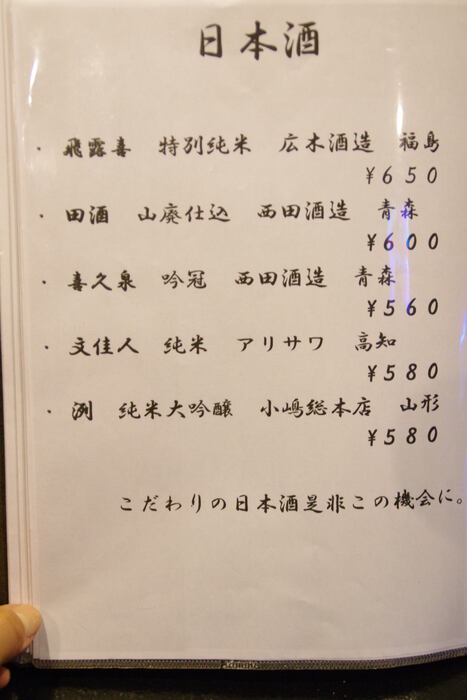 日本酒
・ 飛露喜 特別純米 広木酒造 福島
¥650
・ 田酒 山廃仕込 西田酒造 青森
¥600
・ 喜久泉 吟冠 西田酒造 青森
¥560
・ 文佳人 純米 アリサワ 高知
¥580
・ 洌 純米大吟醸 小嶋総本店 山形
¥580
こだわりの日本酒是非この機会に。